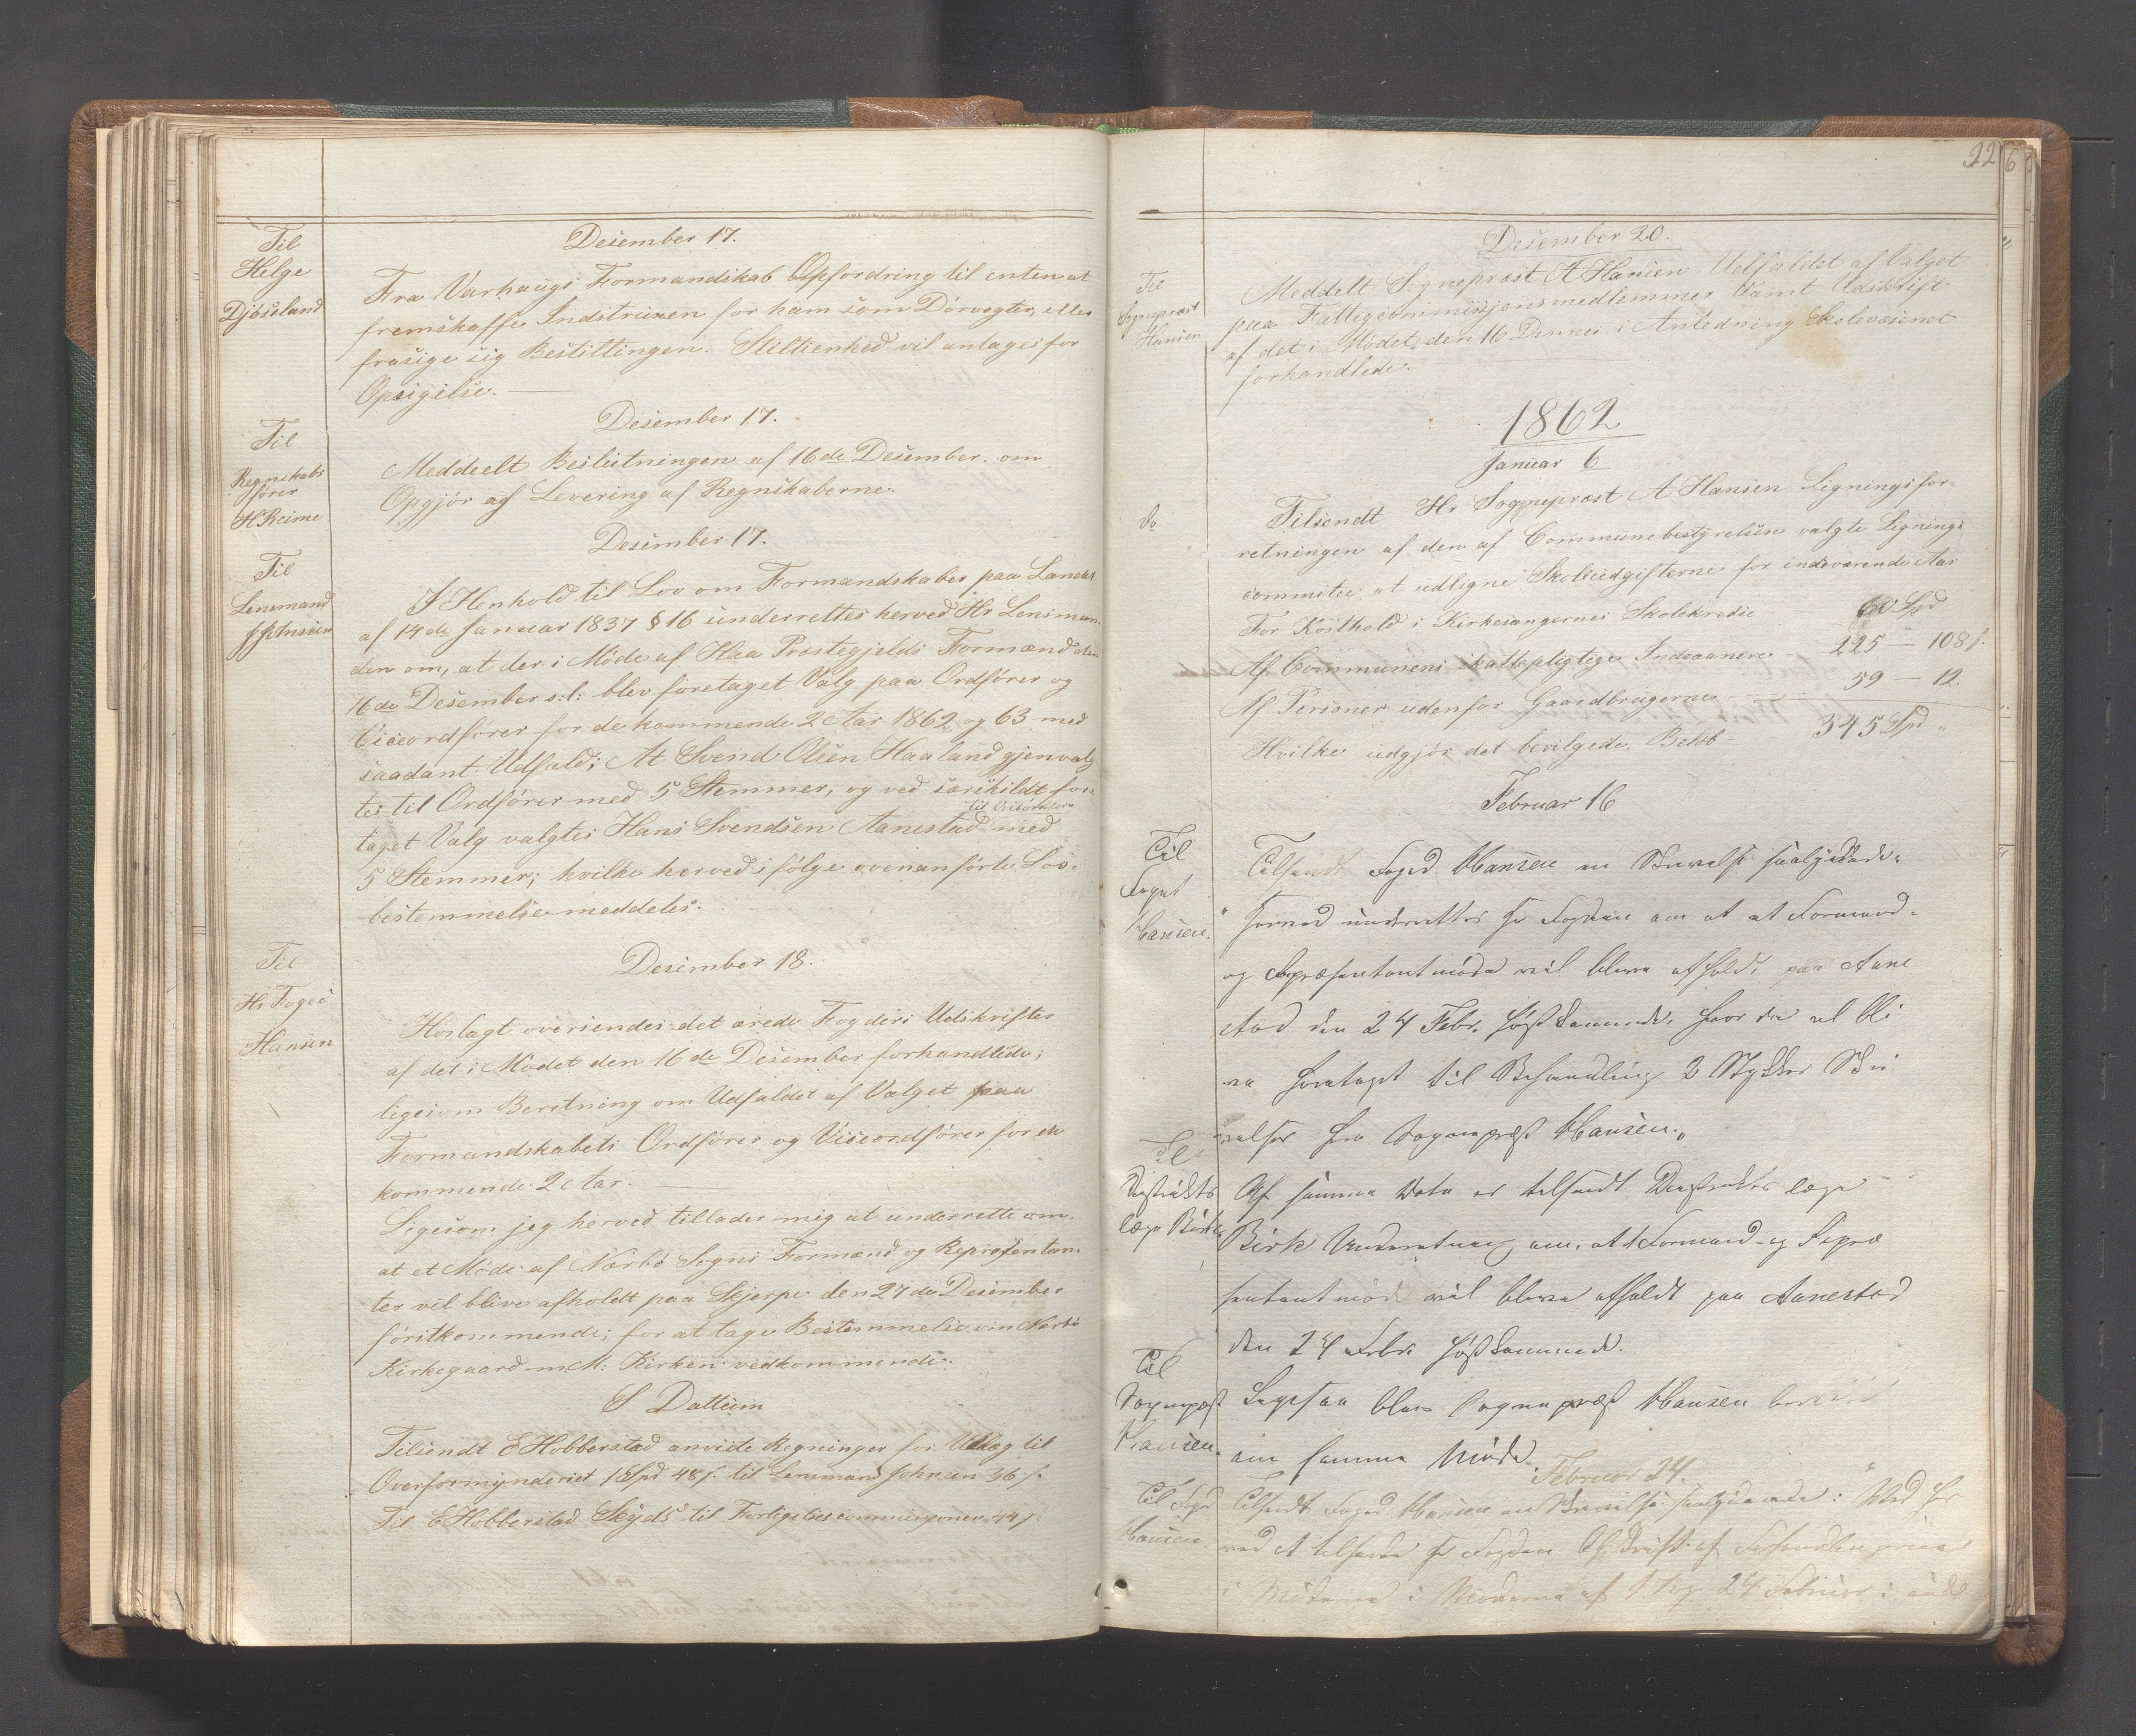 Desember 17.
Til
Helge
Djøseland
Fra Varhaugs Formandskab Opfordring til enten at
fremskaffe Indstruxen for ham som Dørvogter, eller
frasige sig Bestillingen. Stiltienhed vil antages for
Opsigelse.
Desember 17.
Til
Regnskabs
fører
H. Reime
Meddeelt Beslutningen af 16de Desember om
Opgjør af Levering af Regnskaberne.
Desember 17.
Til
Lensmand
I Henhold til Lov om Formandskaber paa Landet
af 14de Januar 1837 § 16 underrettes herved Hr Lensman
den om, at der i Møde af Haa Præstegjelds Formænd den
16de Desember s: l: blev foretaget Valg paa Ordfører og
Viceordfører for de kommende 2 Aar 1862 og 63 med
saadant Udfald; At Svend Olsen Haaland gjenvalg
tes til Ordfører med 5 Stemmer, og ved særskildt fore
taget Valg valgtes Hans Svendsen Aanestad med
5 Stemmer; hvilke herved ifølge ovenanførte Lov-
bestemmelse meddeles.
Desember 18.
Til
Hr Foged
Hansen
Hoslagt oversendes det ærede Fogderi Udskrifter
af det i Mødet den 16de Desember forhandlede;
ligesom Beretning om Udfaldet af Valget paa
Formandskabets Ordfører og Viseordfører for de
kommende 2 Aar.
Ligesom jeg herved tillader mig at underrette om,
at et Møde af Nærbø Sogns Formænd og Repræsentan
ter vil blive afholdt paa Skjerpe den 27de Desember
førstkommende; for at tage Bestemmelse om Nærbø
Kirkegaard m. M: Kirken vedkommende.
S Dattum
Tilsendt E Hobberstad anviste Regninger for Udlæg til
Overformynderiet 1 Spd 48 s. til Lensmand Johnsen 36 s.
Til E Hobberstad Skyds til Forligelsescommissionen 44 s.
226
Desember 20.
Til
Sognepræst
Hansen
Meddelt Sognepræst A Hansen Udfaldet af Valget
paa Fattigcommissjonsmedlemmer samt Udskrift
af det i Mødet den 16 Dennes i Anledning Skolevæsenet
forhandlede.
1862
Januar 6
Do
Tilsendt Hr Sognepræst A Hansen Ligningsfor-
retningen af den af Communebestyrelsen valgte Lignings
commitee at udligne Skoleudgifterne for indeværende Aar
For Kosthold i Kirkesangernes Skolekredse 60 Spd
Af Communens skattepligtige Indvaanere 225 — 108 s.
Af Personer udenfor Gaardbrugerne 59 — 12
Hvilke udgjør det bevilgede Beløb 345 Spd „
Februar 16
Til
Foged
Hansen.
Tilsendt Foged Hansen en Skrivelse saalydende:
„Herved underrettes Hr Fogden om at et Formand-
og Repræsentantmøde vil blive afholdt paa Aane
stad den 24 Febr. førstkommende, hvor der vil bli
ve foretaget til Behandling 2 Stykker Skri
velser fra Sognepræst Hansen.„
Til
Distrikts
læge Birk
Af samme Dato er tilsendt Distrikts læge
Birk Underretning om, at Formand- og Repræ
sentantmøde vil blive afholdt paa Aanestad
den 24 Febr førstkommende.
Til
Sognepræst
Hansen.
Ligesaa blev Sognepræst Hansen
om samme Møde.
Februar 24.
Til Foged
Hansen
Tilsendt Foged Hansen en Skrivelse saalydende: „Med her
ved at tilsende Hr Fogden Afskrift af Forhandlingerne
i Møderne af 24 Februar